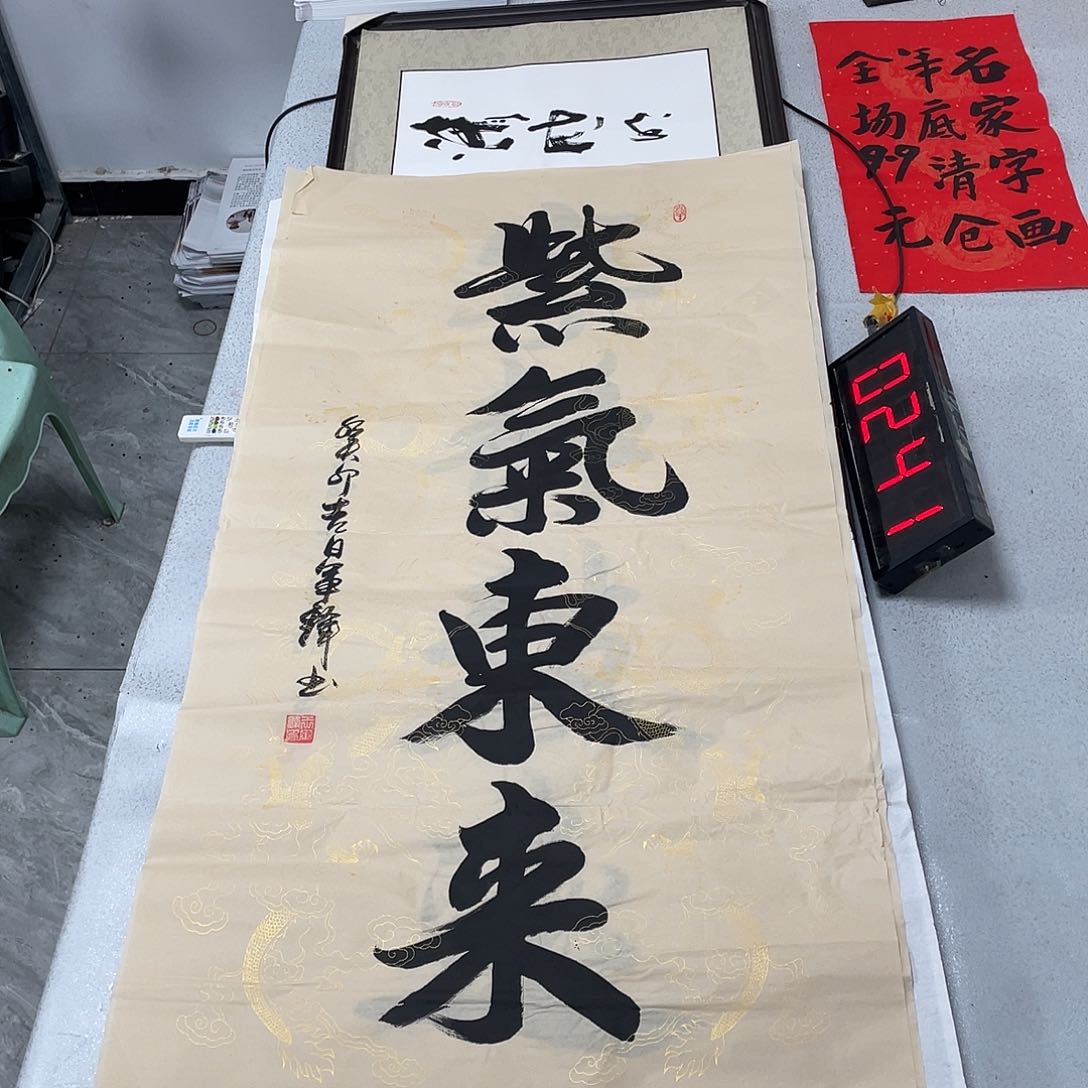 紫氣東来
癸卯吉日军辉书
名家字画
年底清仓
全场99元
0241